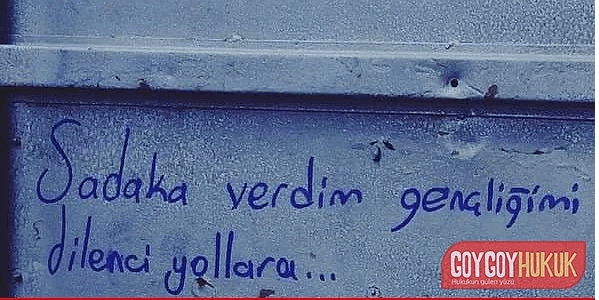 Sadaka verdim gençliğimi
dilenci yollara...
GOYGOYHUKUK
Hukukun gülen yüzü